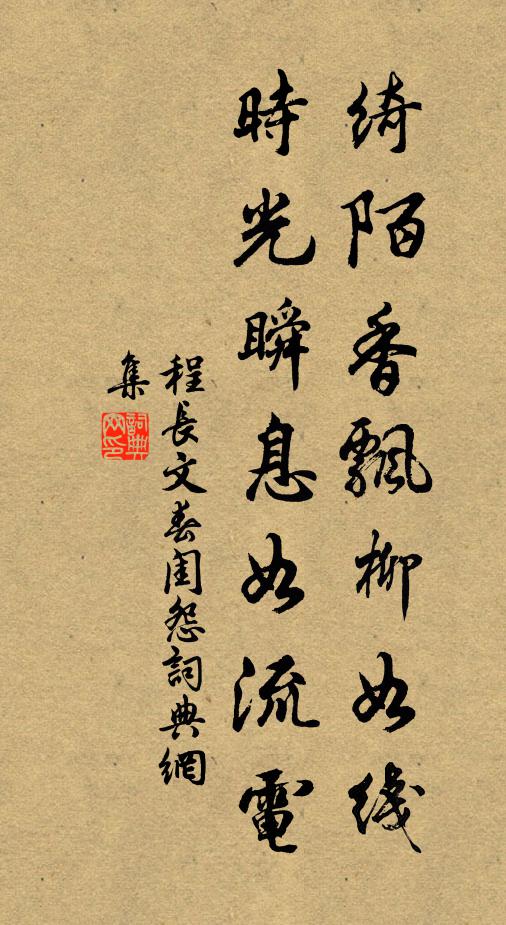 绮陌香飘柳如线
時光瞬息如流電
程長文春闺怨詞典網
集
詞典
网印